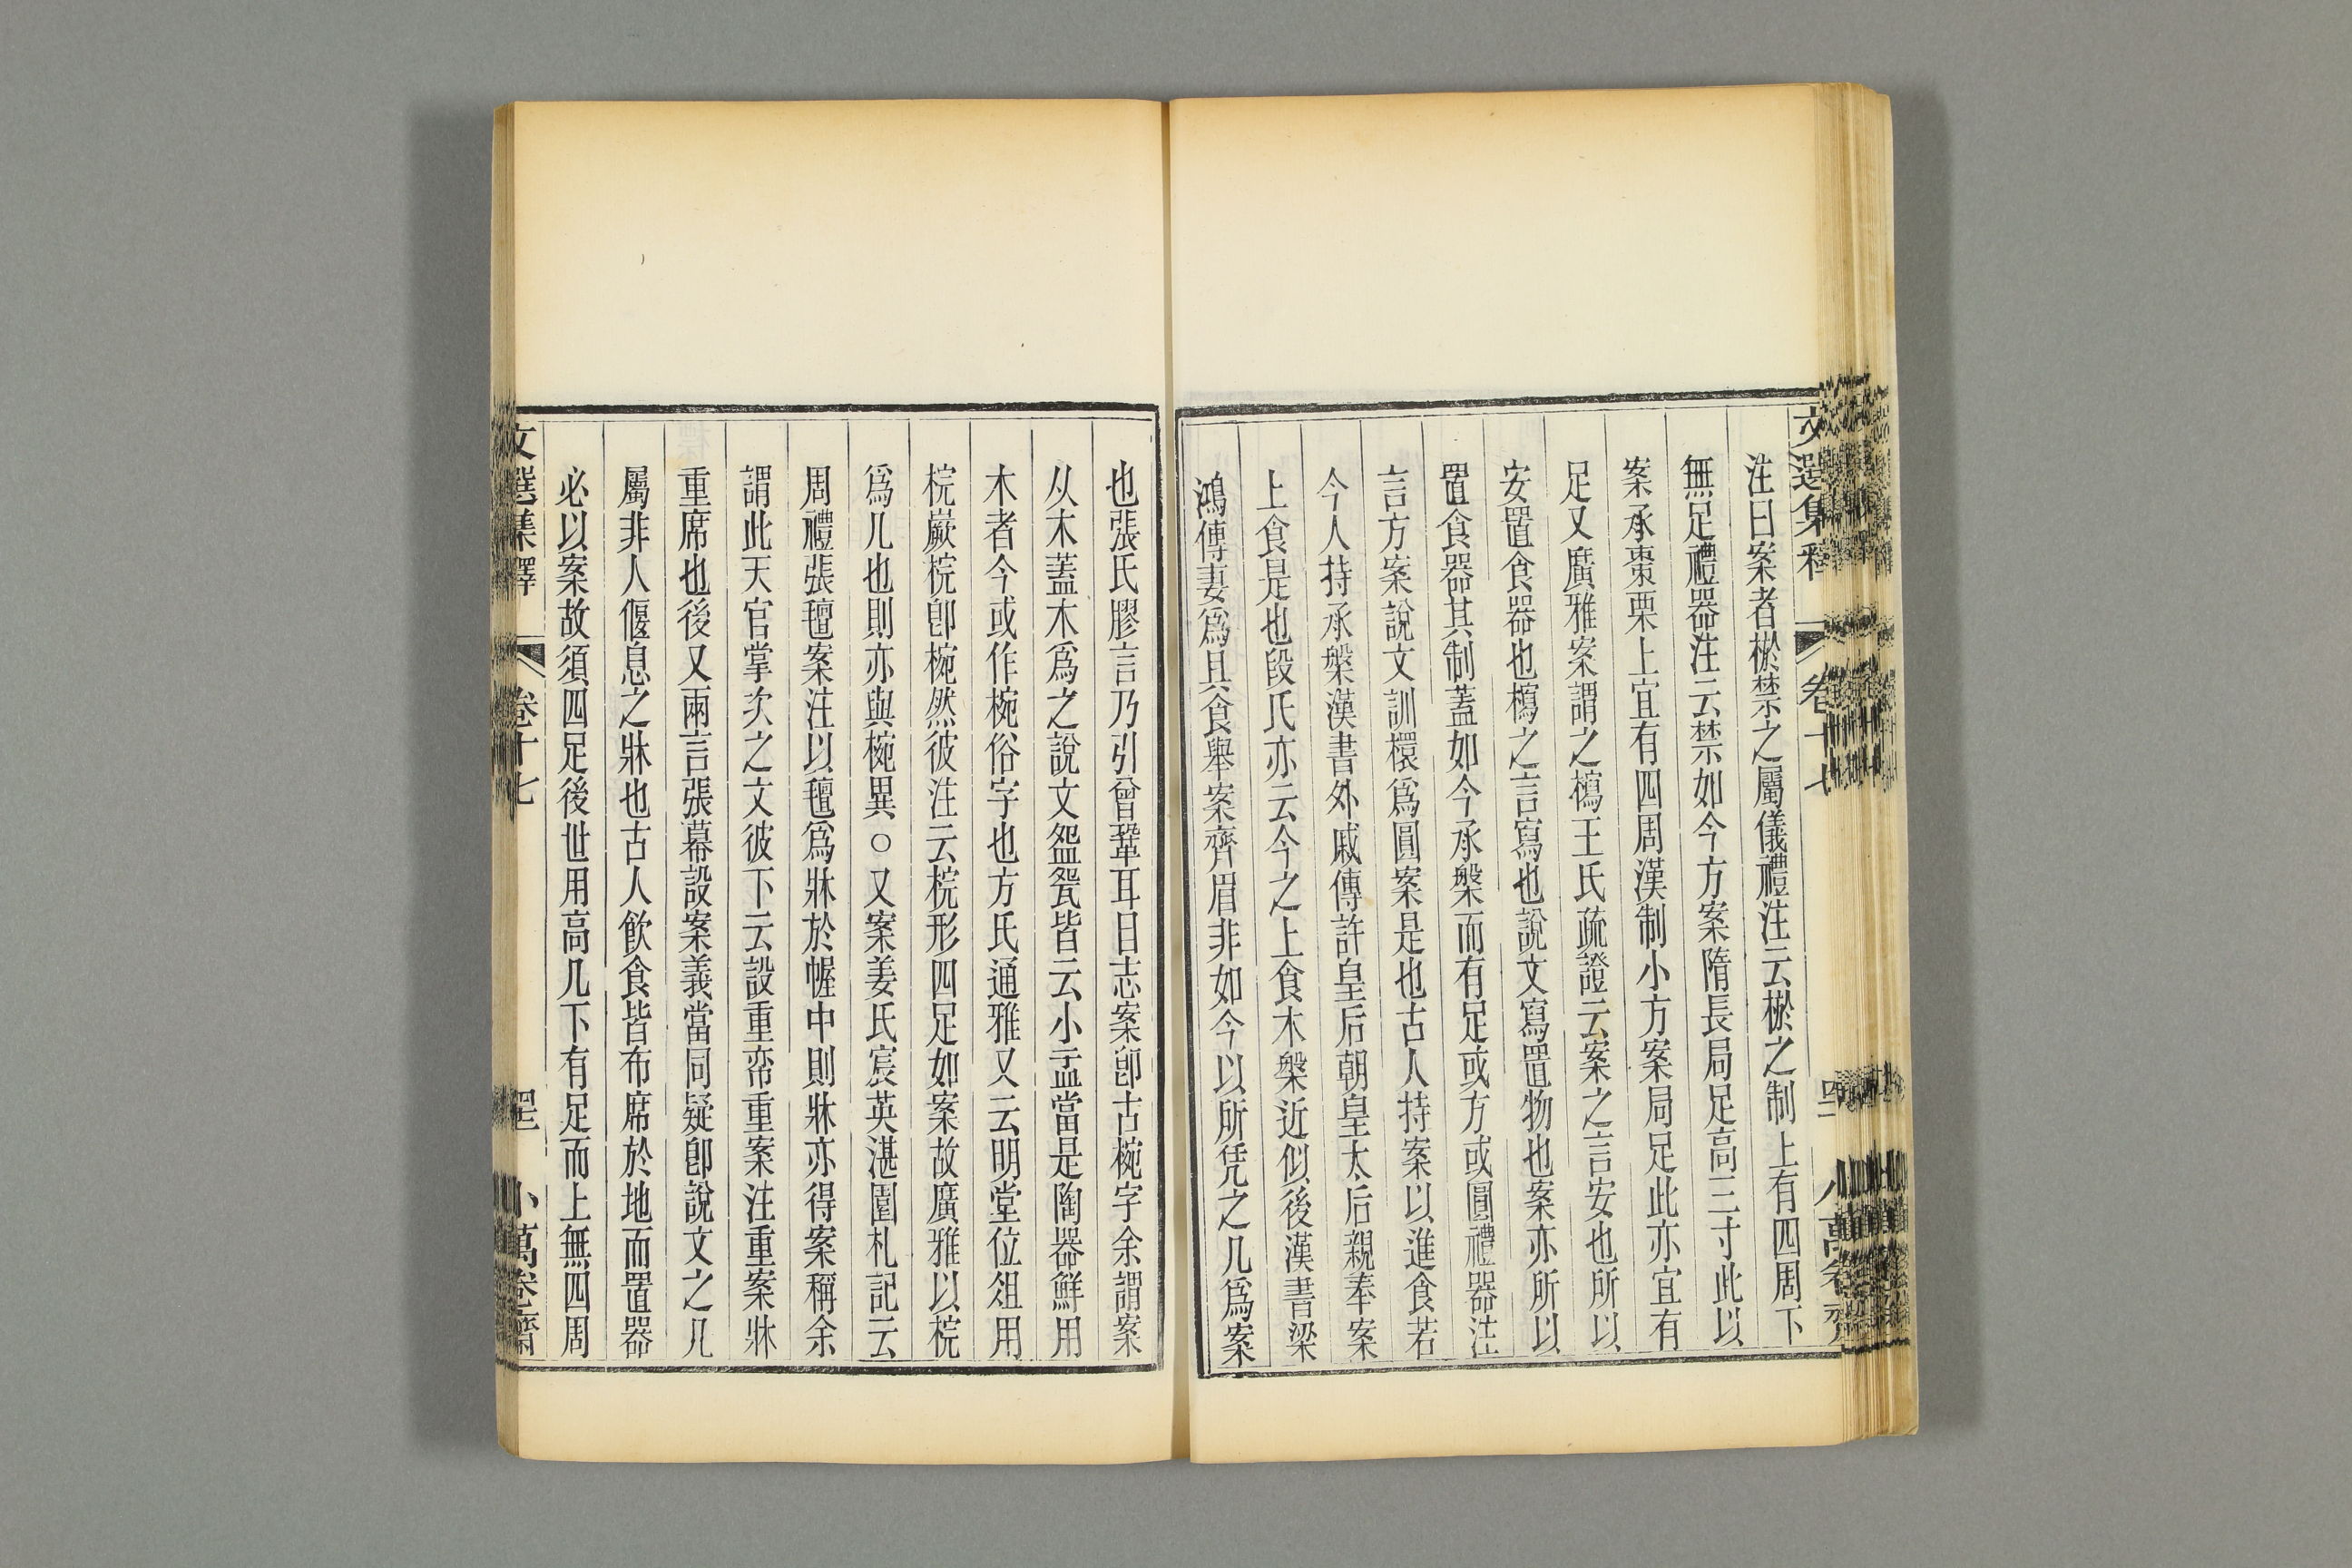 文選集釋 卷十七
注曰案者棜禁之屬儀禮注云棜之制上有四周下
無足禮器注云禁如今方案隋長局足高三寸此以
案承棗栗上宜有四周漢制小方案局足此亦宜有
足又廣雅案謂之㯓王氏疏證云案之言安也所以
安置食器也㯓之言寫也說文寫置物也案亦所以
置食器其制蓋如今承槃而有足或方或圓禮器注
言方案說文訓檈為圓案是也古人持案以進食若
今人持承槃漢書外戚傳許皇后朝皇太后親奉案
上食是也段氏亦云今之上食木槃近似後漢書梁
鴻傳妻為具食舉案齊眉非如今以所凭之几為案
也張氏膠言乃引曾鞏耳目志案卽古椀字余謂案
从木蓋木為之說文盌㼝皆云小盂當是陶器鮮用
木者今或作椀俗字也方氏通雅又云明堂位俎用
梡嶡梡卽椀然彼注云梡形四足如案故廣雅以梡
為几也則亦與椀異○又案姜氏宸英湛園札記云
周禮張氊案注以氊為牀於幄中則牀亦得案稱余
謂此天官掌次之文彼下云設重帟重案注重案牀
重席也後又兩言張幕設案義當同疑卽說文之几
屬非人偃息之牀也古人飲食皆布席於地而置器
必以案故須四足後世用高几下有足而上無四周
文選集釋 卷十七 小萬卷齋